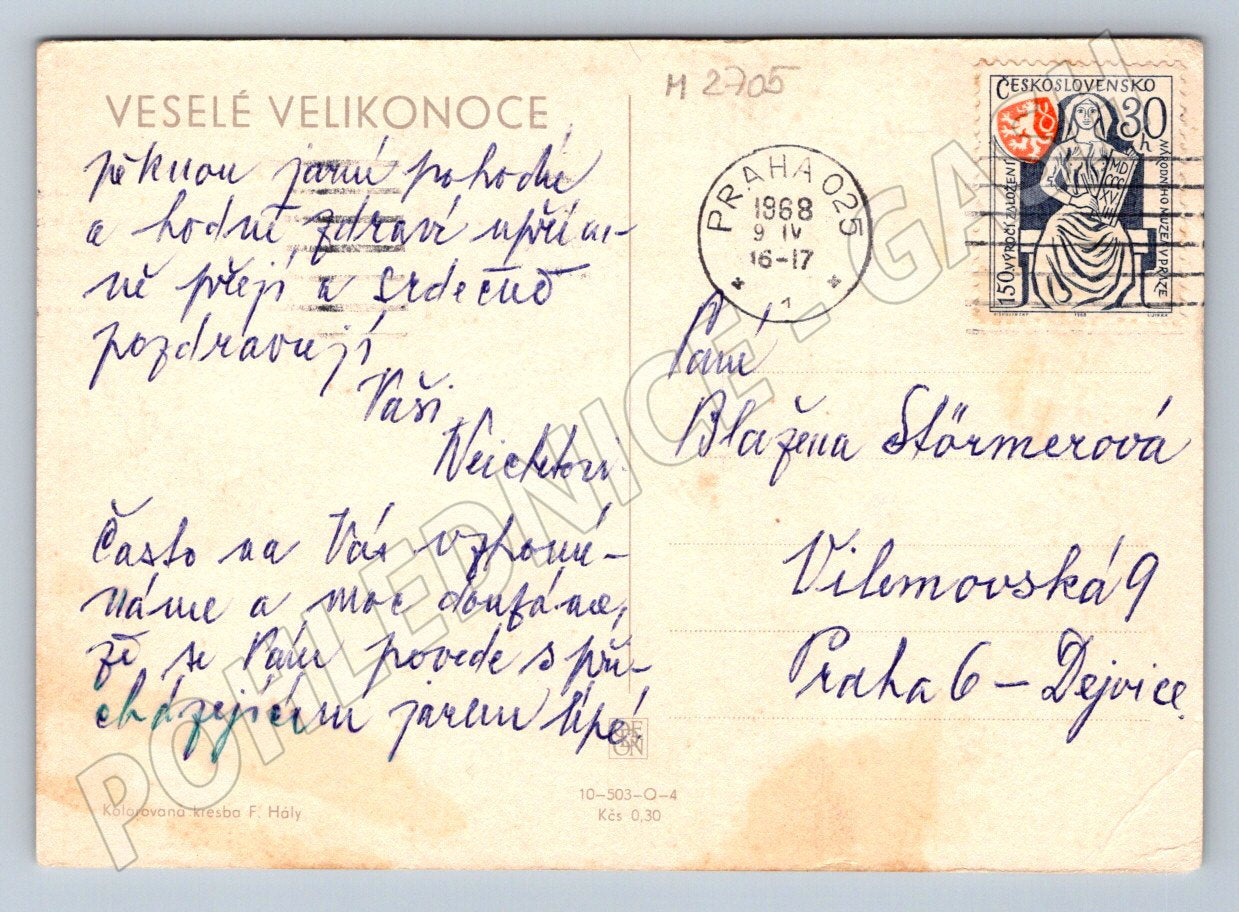 VESELÉ VELIKONOCE
pěknou jarní pohodu
a hodně zdraví upřím-
ně přejí a srdečně
pozdravují
Vaši
Často na Vás vzpomí-
náme a moc doufáme,
že se Vám povede s při-
cházejícím jarem lépe.
Kolorovaná kresba F. Hály
ODE
ON
10-503-O-4
Kčs 0,30
M 2705
PRAHA 025
1968
9 IV
16-17
1
ČESKOSLOVENSKO
30 h
150 VÝROČÍ ZALOŽENÍ
NÁRODNÍHO MUZEA V PRAZE
MD
CCC
XV
III
1968
Paní
Blažena Störmerová
Vilemovská 9
Praha 6 – Dejvice.
POHLEDNICE - GASU